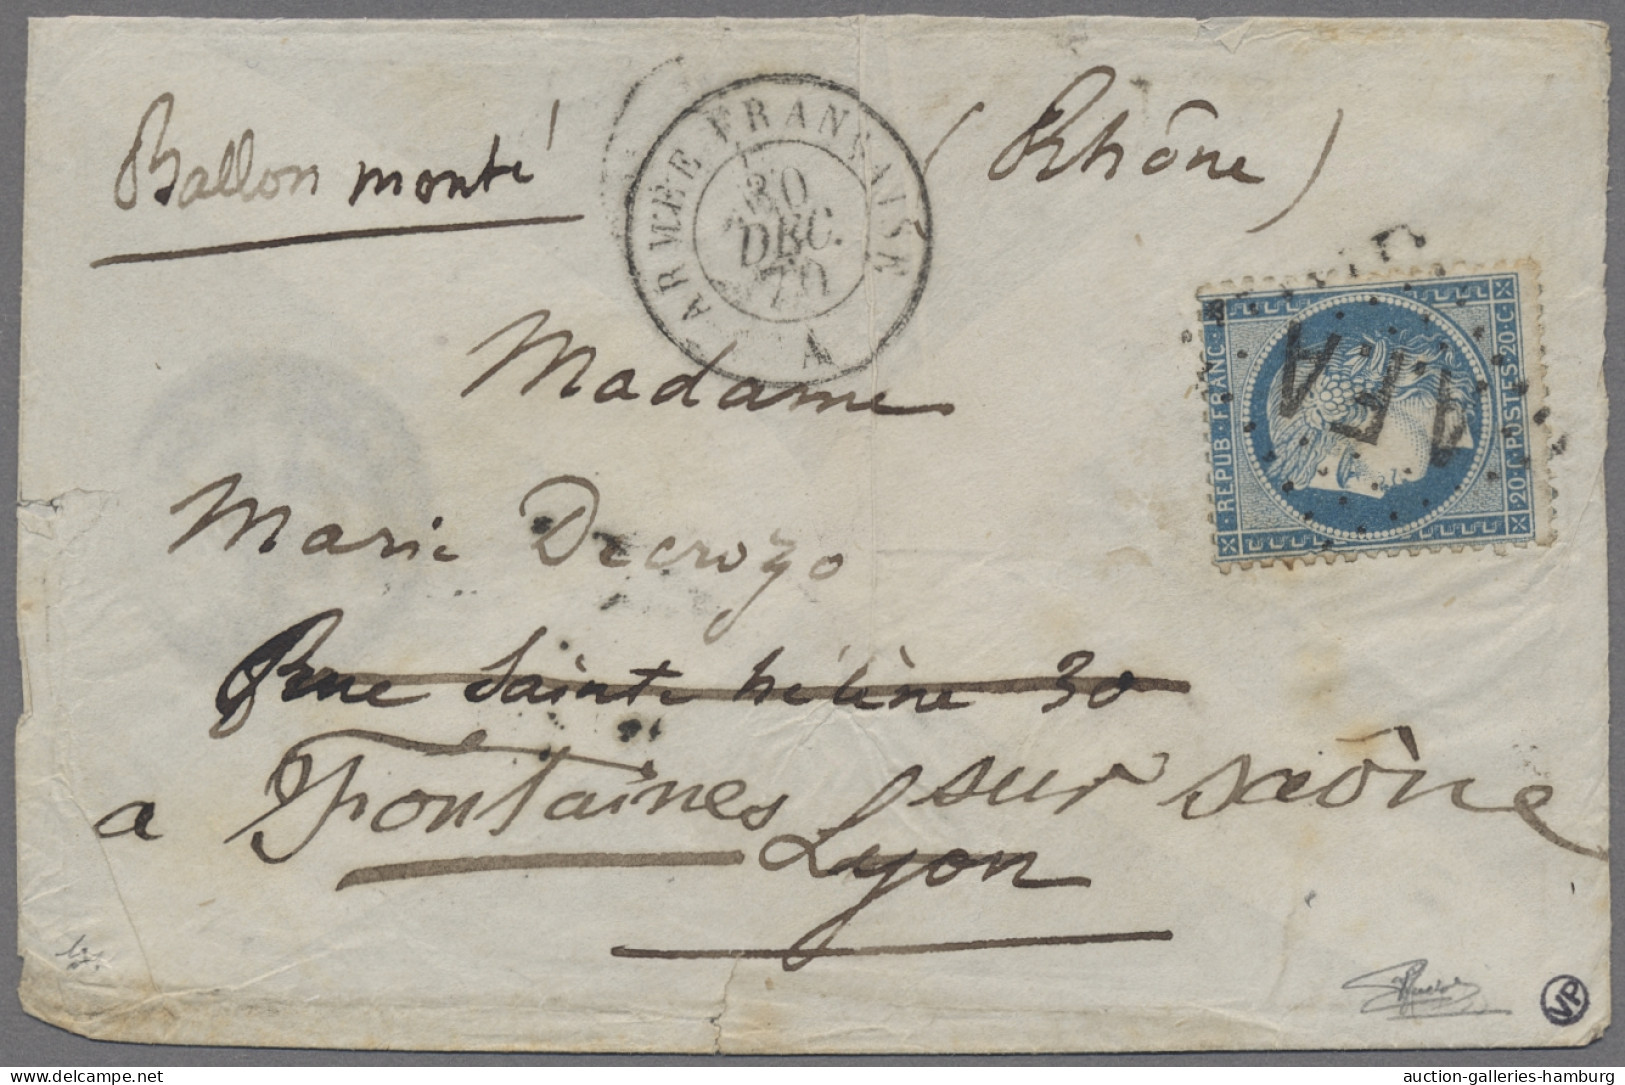 Ballon monté
(Rhône)
ARMÉE FRANÇAISE
30
DEC.
70
A
REPUB · FRANC ·
20 · C · POSTES · 20 · C
A.F.A
Madame
Marie Decrozo
Rue Sainte hélène 30
a Fontaines sur saône
Lyon
VP
auction-galleries-hamburg